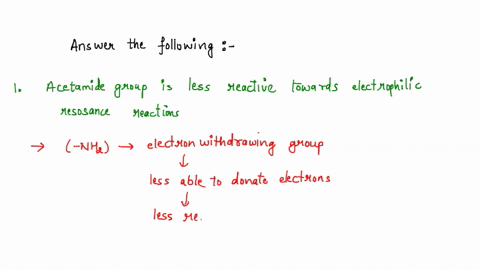 Answer the following :-
1. Acetamide group is less reactive towards electrophilic
resosance reactions
→ (-NH2) → electron withdrawing group
↓
less able to donate electrons
↓
less re.